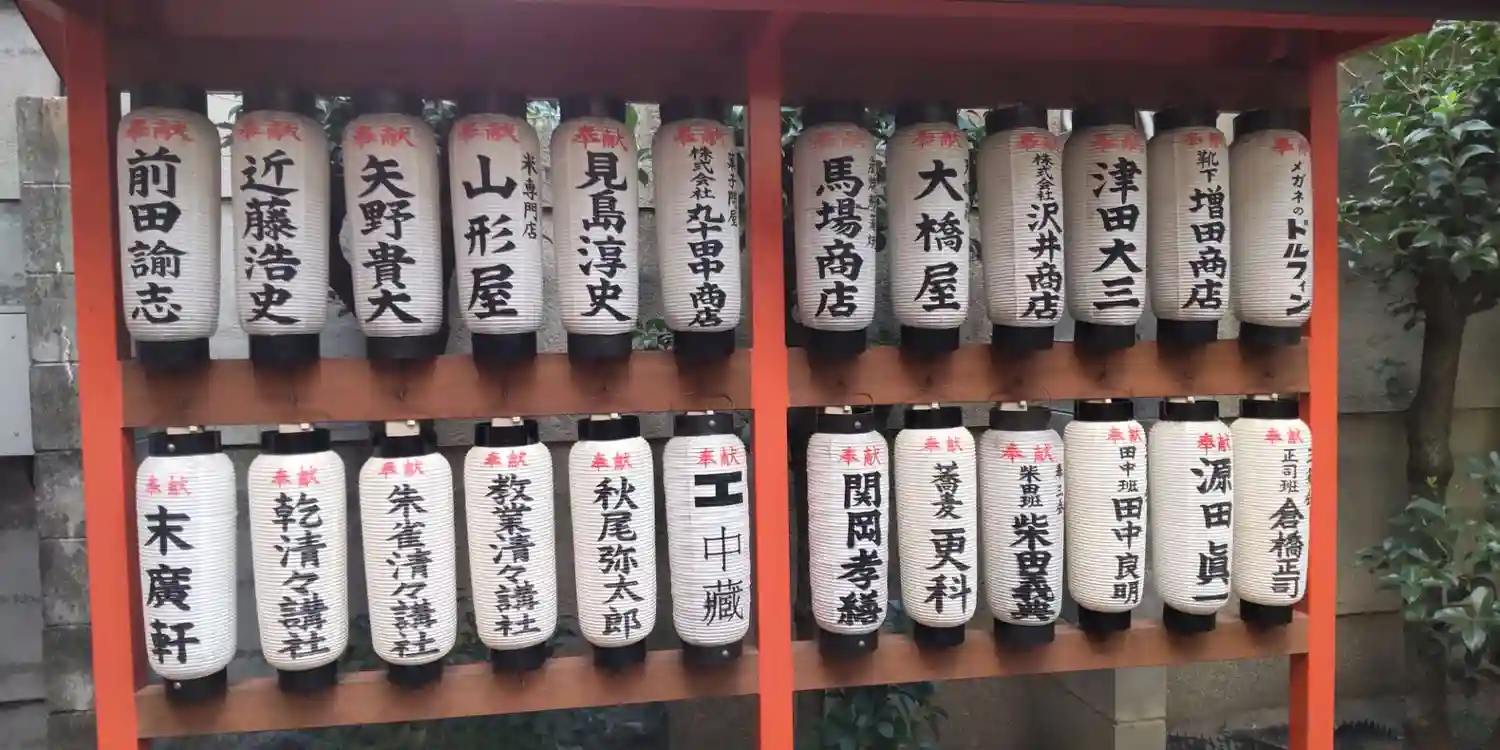 奉献
前田諭志
奉献
近藤浩史
奉献
矢野貴大
奉献
米専門店
山形屋
奉献
見島淳史
奉献
株式会社
丸十田中商店
奉献
馬場商店
奉献
大橋屋
奉献
株式会社
沢井商店
奉献
津田大三
奉献
靴下
増田商店
奉献
メガネの
ドルフィン
奉献
末廣軒
奉献
乾清々講社
奉献
朱雀清々講社
奉献
教業清々講社
奉献
秋尾弥太郎
奉献
中藏
奉献
関岡孝繕
奉献
蕎麦
更科
奉献
柴田班
柴田義典
奉献
田中班
田中良明
奉献
源田眞一
奉献
正司班
倉橋正司